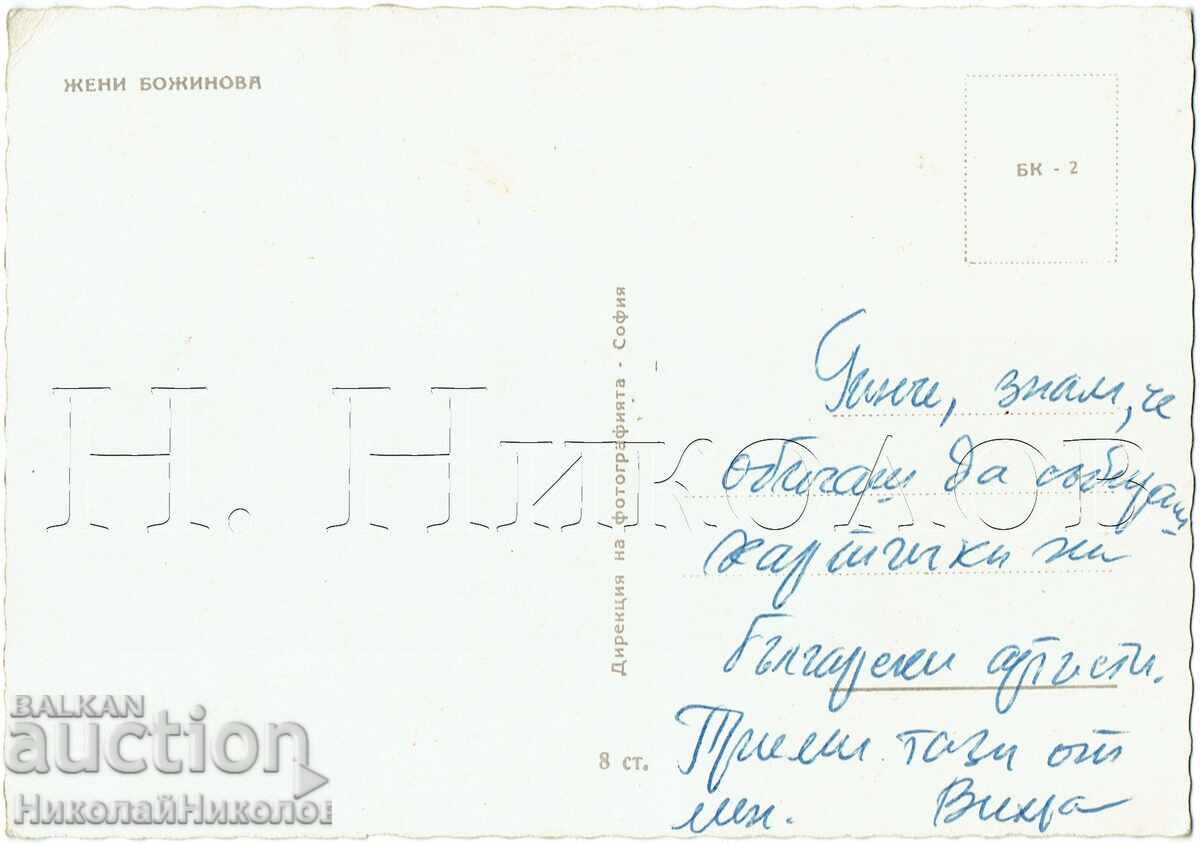 ЖЕНИ БОЖИНОВА
БК - 2
Дирекция на фотографията - София
8 ст.
знам, че
обичаш да събираш
картички на
български артисти.
Приеми тази от
мен.
Н. Николов
BALKAN
auction
НиколайНиколов